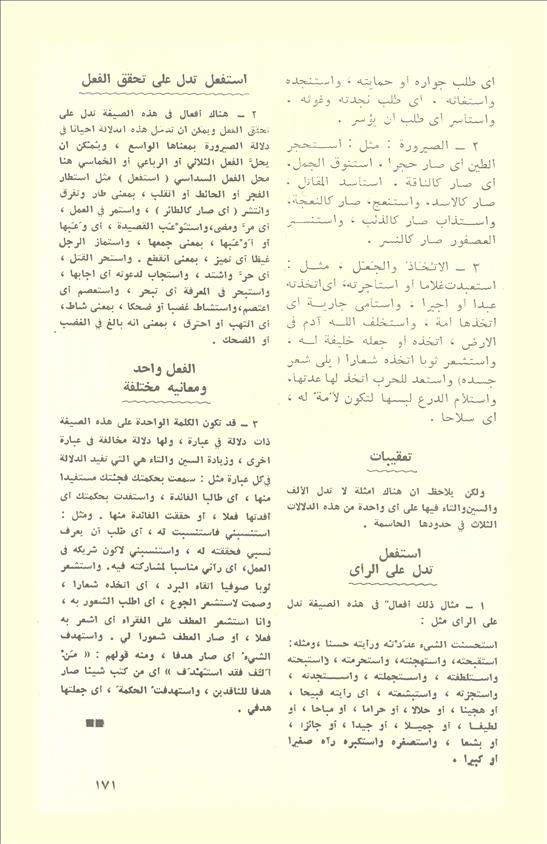 اى طلب جواره أو حمايته ، واستنجده
واستغاثه . أى طلب نجدته وغوثه .
واستأسر أى طلب ان يؤسر .
٢ – الصيرورة : مثل : استحجر
الطين أى صار حجرا ، استنوق الجمل.
أى صار كالناقة . استأسد المقاتل .
صار كالاسد. واستنعج. صار كالنعجة.
واستذاب صار كالذئب ، واستنسر
العصفور صار كالنسر .
٣ – الاتخاذ والجعل ، مثل :
استعبدت غلاما أو استأجرته، أى اتخذته
عبدا أو اجيرا ، واستأمى جارية أى
اتخذها أمة ، واستخلف الله آدم فى
الارض ، اتخذه أو جعله خليفة له .
واستشعر ثوبا اتخذه شعارا ( يلى شعر
جسده) واستعد للحرب اتخذ لها عدتها.
واستلأم الدرع لبسها لتكون لأمة له ،
أى سلاحا .
تعقيبات
ولكن يلاحظ ان هناك امثلة لا تدل الألف
والسين والتاء فيها على أى واحدة من هذه الدلالات
الثلاث في حدودها الحاسمة .
استفعل
تدل على الرأى
١ – مثال ذلك أفعال فى هذه الصيغة تدل
على الرأى مثل :
استحسنت الشىء عددته ورأيته حسنا ، ومثله:
استقبحته ، واستهجنته، واستحرمته ، واستبحته
واستلطفته ، واستجملته ، واستجدته ،
واستجزته ، واستبشعته ، أى رأيته قبيحا ،
أو هجينا ، أو حلالا ، أو حراما ، أو مباحا ، أو
لطيفا ، أو جميلا ، أو جيدا ، أو جائزا ،
أو بشعا ، واستصغره واستكبره رآه صغيرا
أو كبيرا .
استفعل تدل على تحقق الفعل
٢ – هناك أفعال فى هذه الصيغة تدل على
تحقق الفعل ويمكن ان تدخل هذه الدلالة احيانا في
دلالة الصيرورة بمعناها الواسع ، ويمكن ان
يحل الفعل الثلاثي أو الرباعي أو الخماسي هنا
محل الفعل السداسي ( استفعل ) مثل استطار
الفجر أو الحائط أو انقلب ، بمعنى طار وتفرق
وانتشر ( أى صار كالطائر ) ، واستمر في العمل ،
أى مر ومضى، واستوعب القصيدة ، أى وعبها
أو أوعبها ، بمعنى جمعها ، واستماز الرجل
غيظا أى تميز ، بمعنى انقطع . واستحر القتل ،
أى حر واشتد ، واستجاب لدعوته أى اجابها ،
واستبحر في المعرفة أى تبحر ، واستعصم أى
اعتصم، واستشاط غضبا أو ضحكا ، بمعنى شاط،
أى التهب أو احترق ، بمعنى انه بالغ في الغضب
أو الضحك .
الفعل واحد
ومعانيه مختلفة
٣ – قد تكون الكلمة الواحدة على هذه الصيغة
ذات دلالة في عبارة ، ولها دلالة مخالفة في عبارة
اخرى ، وزيادة السين والتاء هي التي تفيد الدلالة
في كل عبارة مثل : سمعت بحكمتك فجئتك مستفيدا
منها ، أى طالبا الفائدة ، واستفدت بحكمتك أى
أفدتها فعلا ، أو حققت الفائدة منها . ومثل :
استنسبني فاستنسبت له ، أى طلب أن يعرف
نسبي فحققته له ، واستنسبني لاكون شريكه في
العمل، أى رآني مناسبا لمشاركته فيه. واستشعر
ثوبا صوفيا اتقاء البرد ، أى اتخذه شعارا ،
وصمت لاستشعر الجوع ، أى اطلب الشعور به ،
وانا استشعر العطف على الفقراء أى اشعر به
فعلا ، أو صار العطف شعورا لي . واستهدف
الشيء أى صار هدفا ، ومنه قولهم : « من
الف فقد استهدف » أى من كتب شيئا صار
هدفا للناقدين ، واستهدفت الحكمة ، أى جعلتها
هدفي .
١٧١